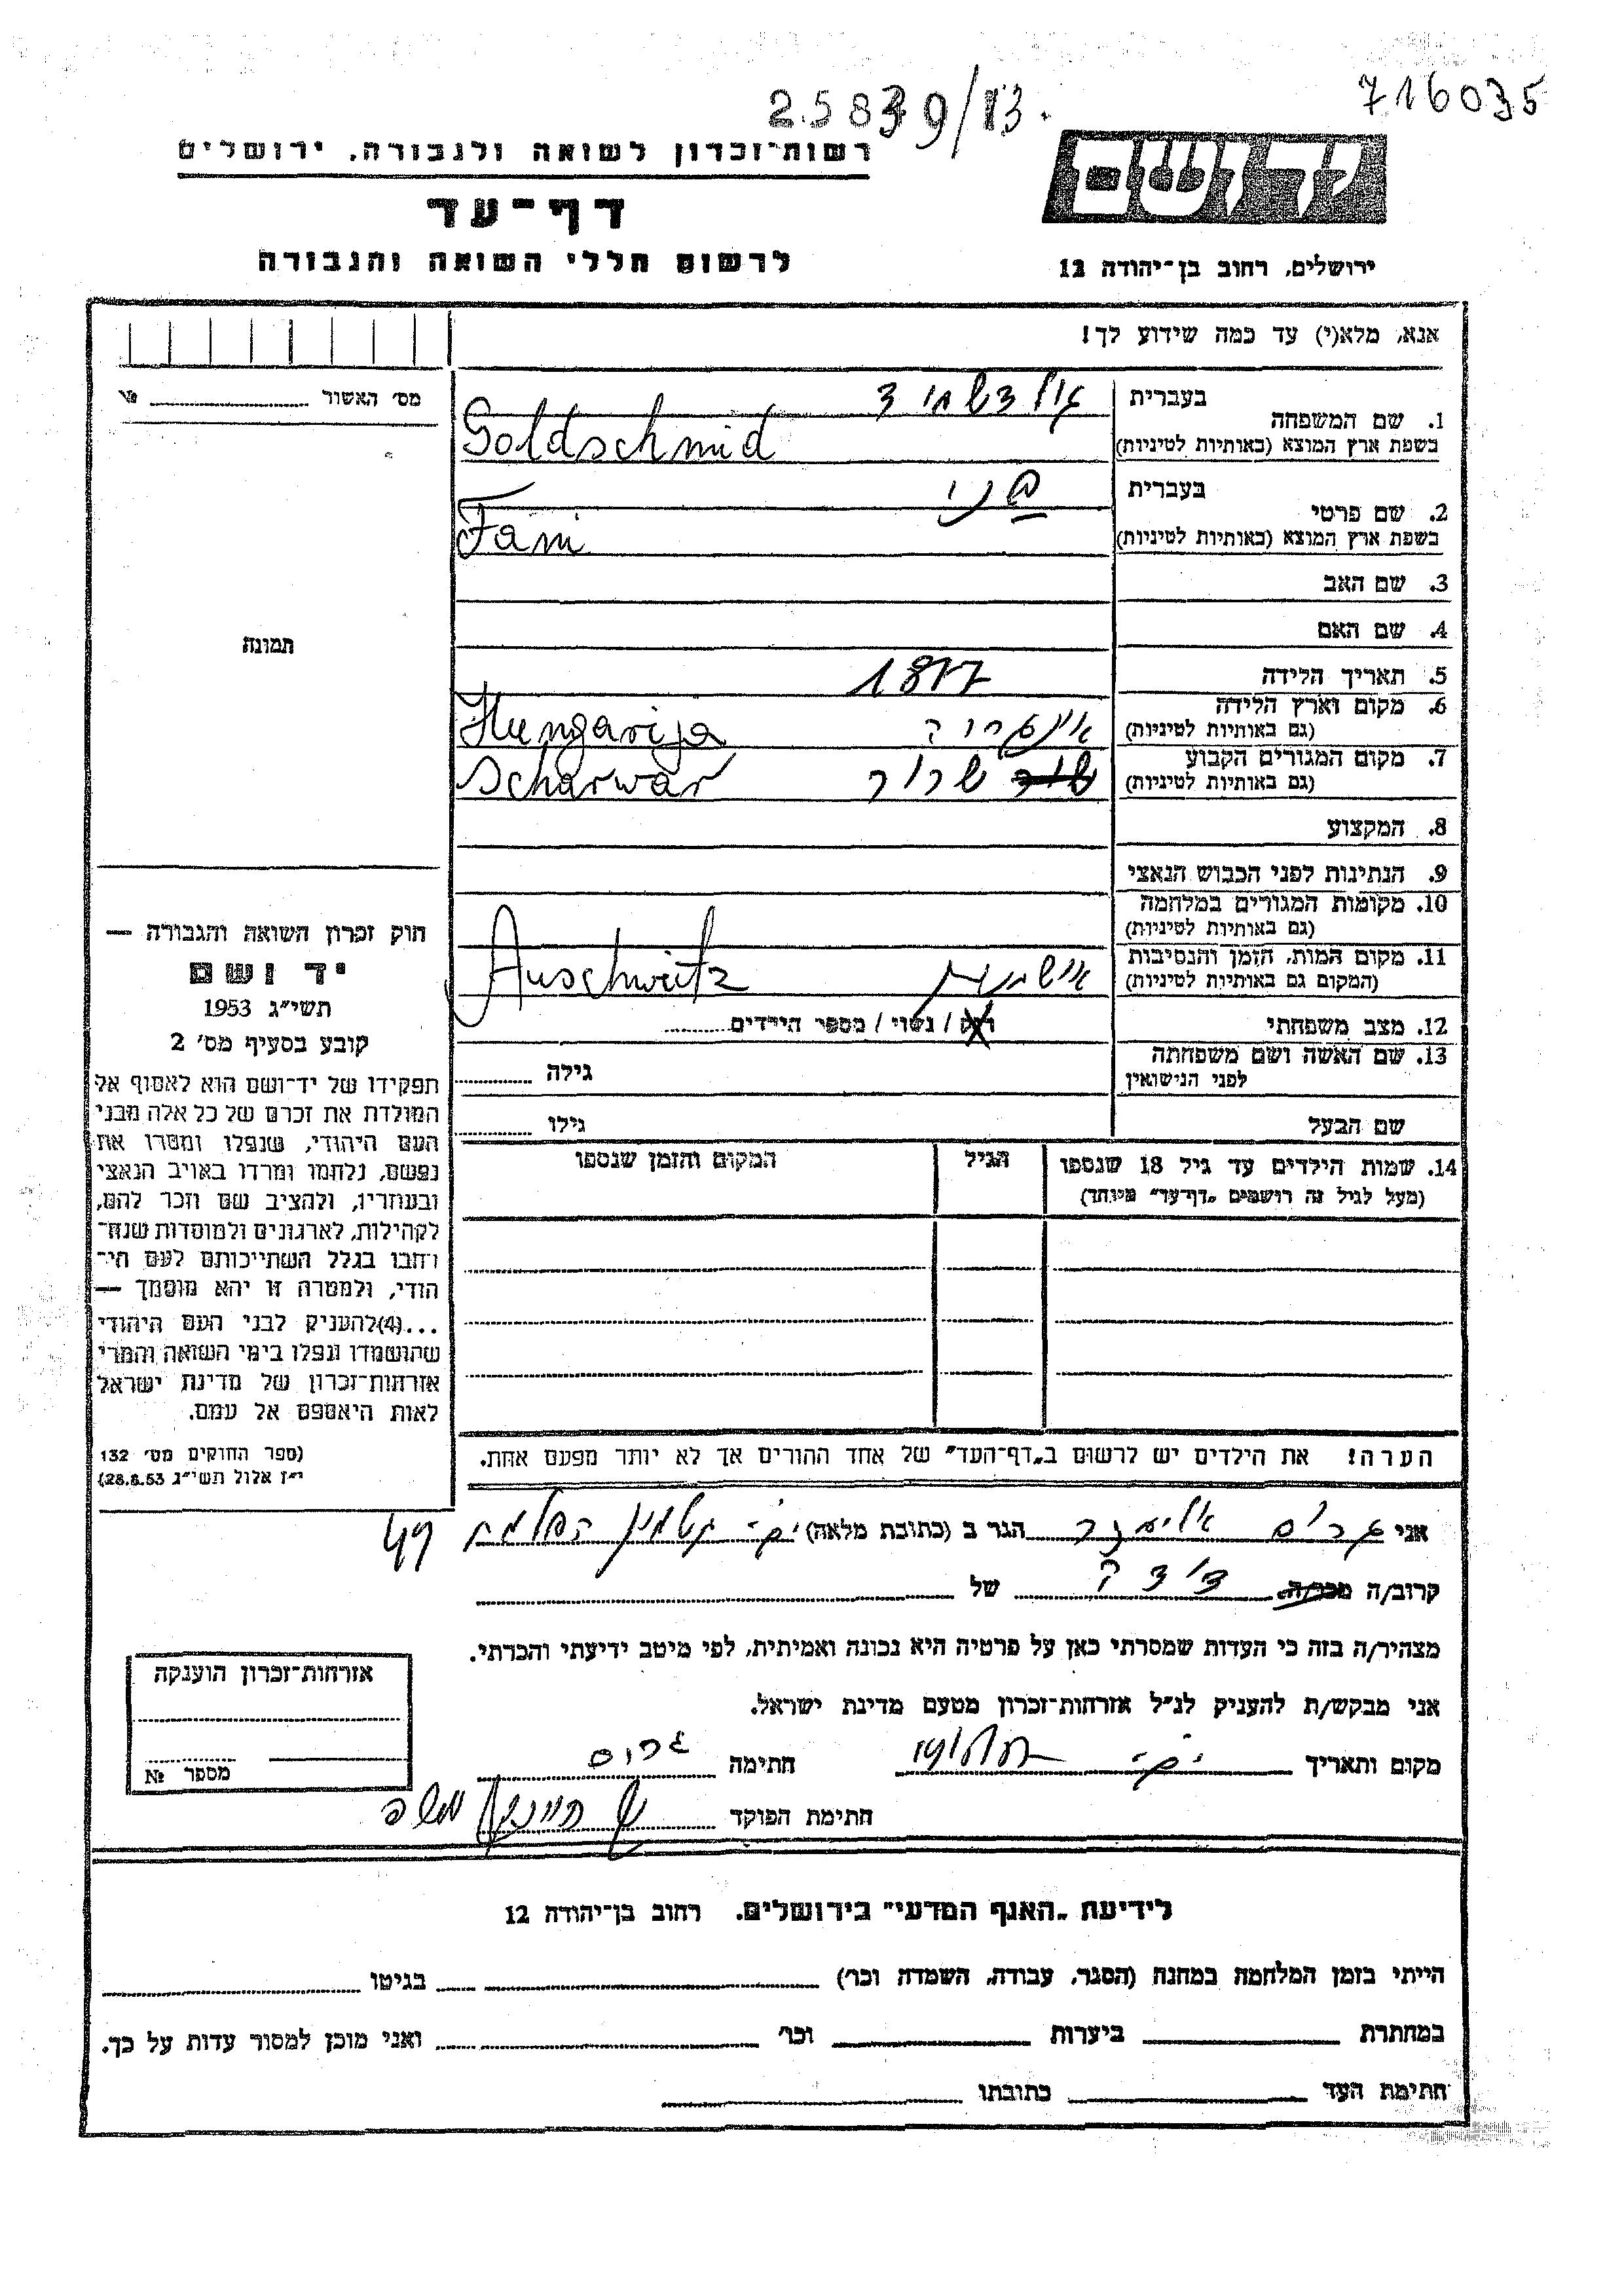 716035
25839/13.
רשות־זכרון לשואה ולגבורה, ירושלים
ידושם
דף־עד
לרשום חללי השואה והגבורה
ירושלים, רחוב בן־יהודה 12
אנא, מלא(י) עד כמה שידוע לך!
מס׳ האשור №
1. שם המשפחה
בעברית גולדשמיד
בשפת ארץ המוצא (באותיות לטיניות) Goldschmid
2. שם פרטי
בעברית פני
בשפת ארץ המוצא (באותיות לטיניות) Fani
3. שם האב
4. שם האם
תמונה
5. תאריך הלידה 1877
6. מקום וארץ הלידה
(גם באותיות לטיניות) Hungarija
7. מקום המגורים הקבוע
(גם באותיות לטיניות) שרור Scharwar
8. המקצוע
9. הנתינות לפני הכבוש הנאצי
10. מקומות המגורים במלחמה
(גם באותיות לטיניות)
11. מקום המות, הזמן והנסיבות
(המקום גם באותיות לטיניות) Auschwitz
12. מצב משפחתי רוק / נשוי / מספר הילדים
13. שם האשה ושם משפחתה
לפני הנישואין גילה
שם הבעל גילו
14. שמות הילדים עד גיל 18 שנספו הגיל המקום והזמן שנספו
(מעל לגיל זה רושמים „דף־עד״ מיוחד)
הערה! את הילדים יש לרשום ב„דף־העד״ של אחד ההורים אך לא יותר מפעם אחת.
חוק זכרון השואה והגבורה —
יד ושם
תשי״ג 1953
קובע בסעיף מס׳ 2
תפקידו של יד־ושם הוא לאסוף אל
המולדת את זכרם של כל אלה מבני
העם היהודי, שנפלו ומסרו את
נפשם, נלחמו ומרדו באויב הנאצי
ובעוזריו, ולהציב שם וזכר להם,
לקהילות, לארגונים ולמוסדות שנח־
רבו בגלל השתייכותם לעם הי־
הודי, ולמטרה זו יהא מוסמך —
...(4)להעניק לבני העם היהודי
שהושמדו ונפלו בימי השואה והמרי
אזרחות־זכרון של מדינת ישראל
לאות היאספם אל עמם.
(ספר החוקים מס׳ 132
י״ז אלול תשי״ג 28.8.53)
אני אליעזר הגר ב (כתובת מלאה) הפלמח 49
קרוב/ה מכר/ה של
מצהיר/ה בזה כי העדות שמסרתי כאן על פרטיה היא נכונה ואמיתית, לפי מיטב ידיעתי והכרתי.
אני מבקש/ת להעניק לנ״ל אזרחות־זכרון מטעם מדינת ישראל.
מקום ותאריך חתימה
חתימת הפוקד
אזרחות־זכרון הוענקה
מספר №
לידיעת „האגף המדעי״ בירושלים. רחוב בן־יהודה 12
הייתי בזמן המלחמה במחנה (הסגר, עבודה, השמדה וכו׳) בגיטו
במחתרת ביערות וכו׳ ואני מוכן למסור עדות על כך.
חתימת העד כתובתו